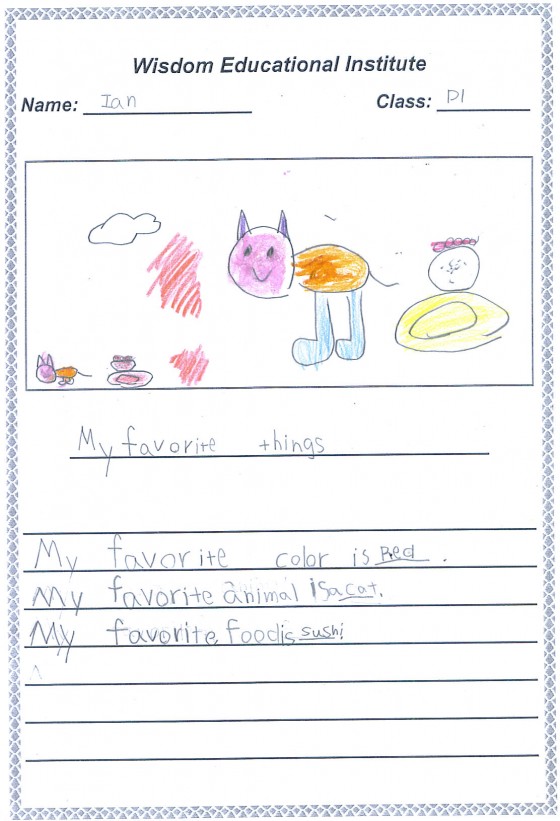 Wisdom Educational Institute
Name: Ian Class: D1
My favorite things
My favorite color is Red.
My favorite animal is a cat.
My favorite food is sushi